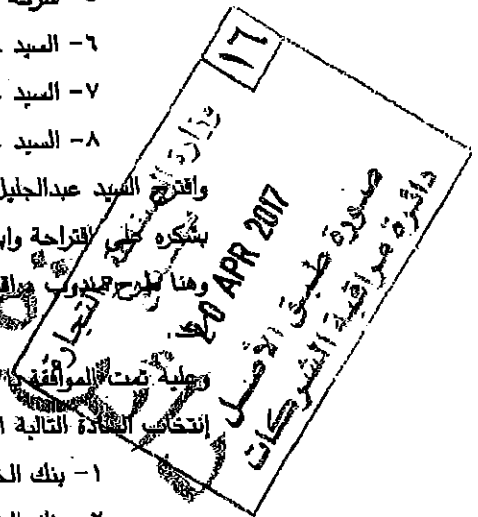 ٦- السيد
٧- السيد
٨- السيد
واقترح السيد عبدالجليل
بشكره على إقتراحة واب
وهنا طرح مندوب مراقب
وعليه تمت الموافقة با
إنتخاب السادة التالية ا
١- بنك الـ
١٦
وزارة الصناعة والتجارة
20 APR 2017
صورة طبق الأصل
دائرة مراقبة الشركات